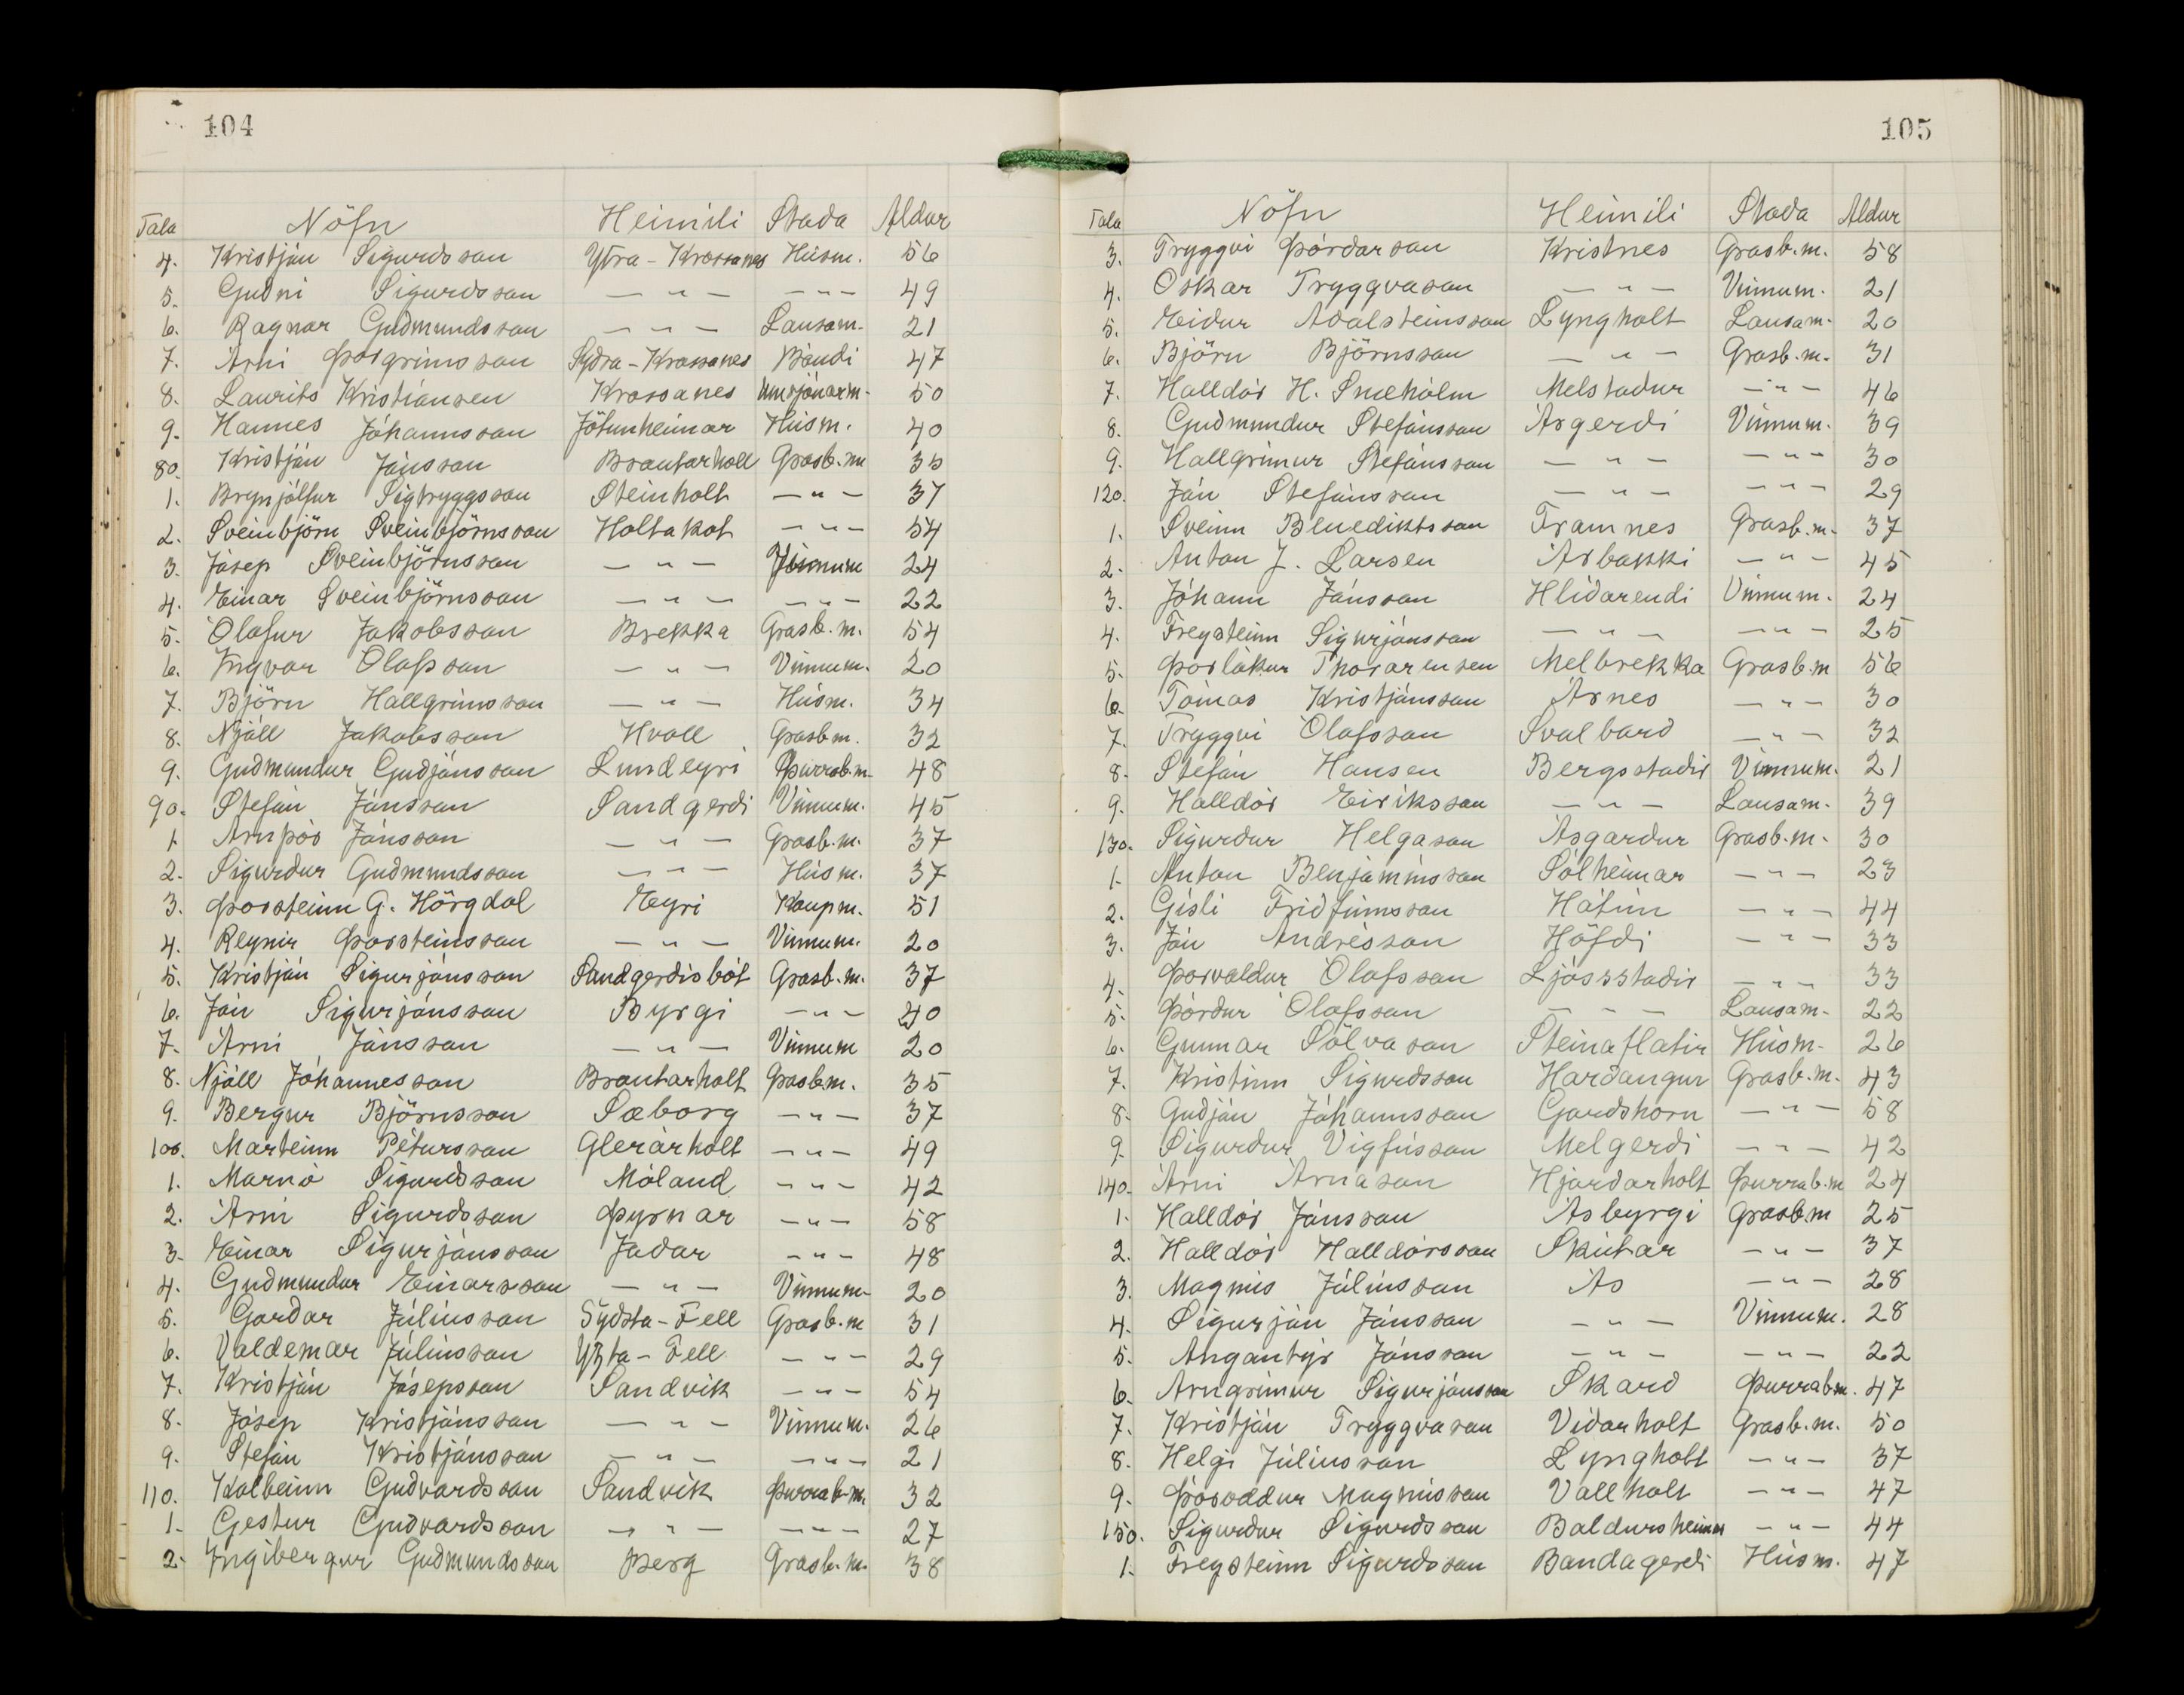 104
Tala Nöfn Heimili Staða Aldur
4. Kristján Sigurðsson Ytra-Krossanes Húsm. 56
5. Guðni Sigurðsson — " — — " — 49
6. Ragnar Guðmundsson — " — Lausam. 21
7. Árni Þorgrímsson Syðra-Krossanes Bóndi 47
8. Laurits Kristiansen Krossanes Umsjónarm. 50
9. Hannes Jóhannsson Jötunheimar Húsm. 40
80. Kristján Jónsson Brautarholl Grasb.m 35
1. Brynjólfur Sigtryggsson Steinholt — " — 37
2. Sveinbjörn Sveinbjörnsson Holtakot — " — 54
3. Jósep Sveinbjörnsson — " — Vinnum 24
4. Einar Sveinbjörnsson — " — — " — 22
5. Ólafur Jakobsson Brekka Grasb.m. 54
6. Yngvar Ólafsson — " — Vinnum. 20
7. Björn Hallgrímsson — " — Húsm. 34
8. Njáll Jakobsson Hvoll Grasbm. 32
9. Guðmundur Guðjónsson Lundeyri Þurrab.m. 48
90. Stefán Jónsson Sandgerði Vinnum. 45
1. Arnþór Jónsson — " — Grasb.m. 37
2. Sigurður Guðmundsson — " — Húsm. 37
3. Þorsteinn G. Hörgdal Eyri Kaupm. 51
4. Reynir Þorsteinsson — " — Vinnum. 20
5. Kristján Sigurjónsson Sandgerðisbót Grasb.m. 37
6. Jón Sigurjónsson Byrgi — " — 40
7. Árni Jónsson — " — Vinnum 20
8. Njáll Jóhannesson Brautarholt Grasb.m. 35
9. Bergur Björnsson Sæborg — " — 37
100. Marteinn Pétursson Glerárholt — " — 49
1. Marnó Sigurðsson Móland — " — 42
2. Árni Sigurðsson Þyrnar — " — 58
3. Einar Sigurjónsson Jaðar — " — 48
4. Guðmundur Einarsson — " — Vinnum. 20
5. Garðar Júlíusson Syðsta-Fell Grasb.m 31
6. Valdemar Júlíusson Yzta-Fell — " — 29
7. Kristján Jósepsson Sandvík — " — 54
8. Jósep Kristjánsson — " — Vinnum. 26
9. Stefán Kristjánsson — " — — " — 21
110. Kolbeinn Guðvarðsson Sandvík Þurrab.m. 32
1. Gestur Guðvarðsson — " — — " — 27
2. Ingibergur Guðmundsson Berg Grasb.m. 38
105
Tala Nöfn Heimili Staða Aldur
3. Tryggvi Þórðarson Kristnes Grasb.m. 58
4. Óskar Tryggvason — " — Vinnum. 21
5. Eiður Aðalsteinsson Lyngholt Lausam. 20
6. Björn Björnsson — " — Grasb.m. 31
7. Halldór H. Snæhólm Melstaður — " — 46
8. Guðmundur Stefánsson Ásgerði Vinnum. 39
9. Hallgrímur Stefánsson — " — — " — 30
120. Jón Stefánsson — " — — " — 29
1. Sveinn Benediktsson Framnes Grasb.m. 37
2. Anton J. Larsen Árbakki — " — 45
3. Jóhann Jónsson Hlíðarendi Vinnum. 24
4. Freysteinn Sigurjónsson — " — — " — 25
5. Þorlákur Thorarensen Melbrekka Grasb.m 56
6. Tómas Kristjánsson Árnes — " — 30
7. Tryggvi Ólafsson Svalbarð — " — 32
8. Stefán Hansen Bergsstaðir Vinnum. 21
9. Halldór Eiríksson — " — Lausam. 39
130. Sigurður Helgason Ásgarður Grasb.m. 30
1. Anton Benjamínsson Sólheimar — " — 23
2. Gísli Friðfinnsson Hátún — " — 44
3. Jón Andrésson Höfði — " — 33
4. Þorvaldur Ólafsson Ljósstaðir — " — 33
5. Þórður Ólafsson — " — Lausam. 22
6. Gunnar Sölvason Steinaflatir Húsm. 26
7. Kristinn Sigurðsson Harðangur Grasb.m. 43
8. Guðjón Jóhannsson Garðshorn — " — 58
9. Sigurður Vigfússon Melgerði — " — 42
140. Árni Árnason Hjarðarholt Þurrab.m 24
1. Halldór Jónsson Ásbyrgi Grasb.m 25
2. Halldór Halldórsson Skútar — " — 37
3. Magnús Júlíusson Ás — " — 28
4. Sigurjón Jónsson — " — Vinnum. 28
5. Angantýr Jónsson — " — — " — 22
6. Arngrímur Sigurjónsson Skarð Þurrabm. 47
7. Kristján Tryggvason Viðarholt Grasb.m. 50
8. Helgi Júlíusson Lyngholt — " — 37
9. Þóroddur Magnússon Vallholt — " — 47
150. Sigurður Sigurðsson Baldursheimur — " — 44
1. Freysteinn Sigurðsson Bandagerði Húsm. 47